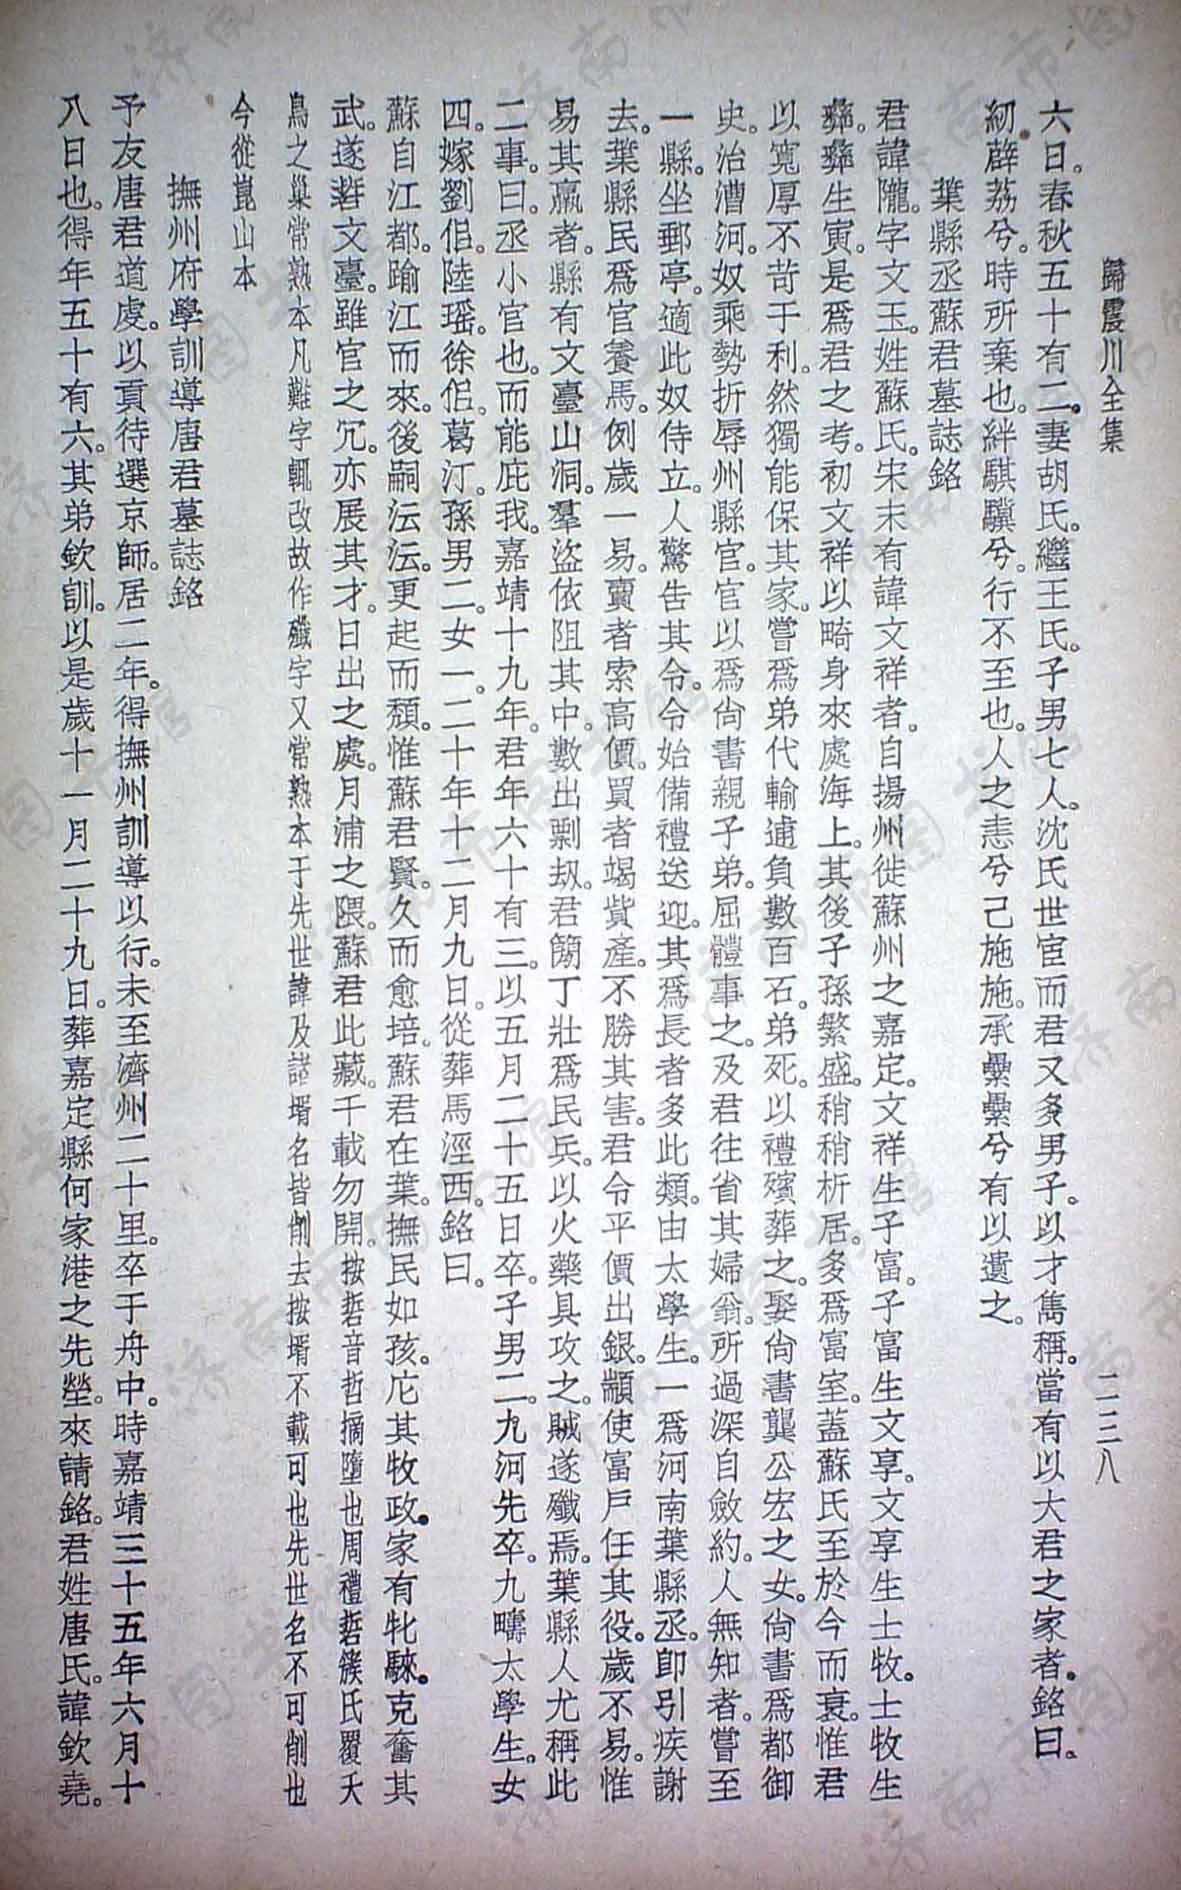 歸震川全集
二三八
六日。春秋五十有二。妻胡氏。繼王氏。子男七人。沈氏世宦而君又多男子。以才雋稱。當有以大君之家者。銘曰。
紉薜荔兮。時所棄也。絆騏驥兮。行不至也。人之恚兮己施施。承纍纍兮有以遺之。
葉縣丞蘇君墓誌銘
君諱隴。字文玉。姓蘇氏。宋末有諱文祥者。自揚州徙蘇州之嘉定。文祥生子富。子富生文享。文享生士牧。士牧生
彝。彝生寅。是爲君之考。初文祥以畸身來處海上。其後子孫繁盛。稍稍析居。多爲富室。蓋蘇氏至於今而衰。惟君
以寬厚不苛于利。然獨能保其家。嘗爲弟代輸逋負數百石。弟死。以禮殯葬之。娶尙書龔公宏之女。尙書爲都御
史。治漕河。奴乘勢折辱州縣官。官以爲尙書親子弟。屈體事之。及君往省其婦翁。所過深自斂約。人無知者。嘗至
一縣。坐郵亭。適此奴侍立。人驚告其令。令始備禮送迎。其爲長者多此類。由太學生。一爲河南葉縣丞。卽引疾謝
去。葉縣民爲官養馬。例歲一易。賣者索高價。買者竭貲產。不勝其害。君令平價出銀。顓使富戶任其役。歲不易。惟
易其羸者。縣有文臺山洞。羣盜依阻其中。數出剽刼。君簡丁壯爲民兵。以火藥具攻之。賊遂殲焉。葉縣人尤稱此
二事。曰。丞小官也。而能庇我。嘉靖十九年。君年六十有三。以五月二十五日卒。子男二。九河先卒。九疇太學生。女
四。嫁劉侶。陸瑤。徐侶。葛汀。孫男二。女一。二十年十二月九日。從葬馬涇西。銘曰。
蘇自江都。踰江而來。後嗣沄沄。更起而頹。惟蘇君賢。久而愈培。蘇君在葉。撫民如孩。庀其牧政。家有牝騋。克奮其
武。遂硩文臺。雖官之冗。亦展其才。日出之處。月浦之隈。蘇君此藏。千載勿開。按硩音哲摘墮也周禮硩簇氏覆夭
鳥之巢常熟本凡難字輒改故作殲字又常熟本于先世諱及諸壻名皆削去按壻不載可也先世名不可削也
今從崑山本
撫州府學訓導唐君墓誌銘
予友唐君道虔。以貢待選京師。居二年。得撫州訓導以行。未至濟州二十里。卒于舟中。時嘉靖三十五年六月十
八日也。得年五十有六。其弟欽訓。以是歲十一月二十九日。葬嘉定縣何家港之先塋。來請銘。君姓唐氏。諱欽堯。